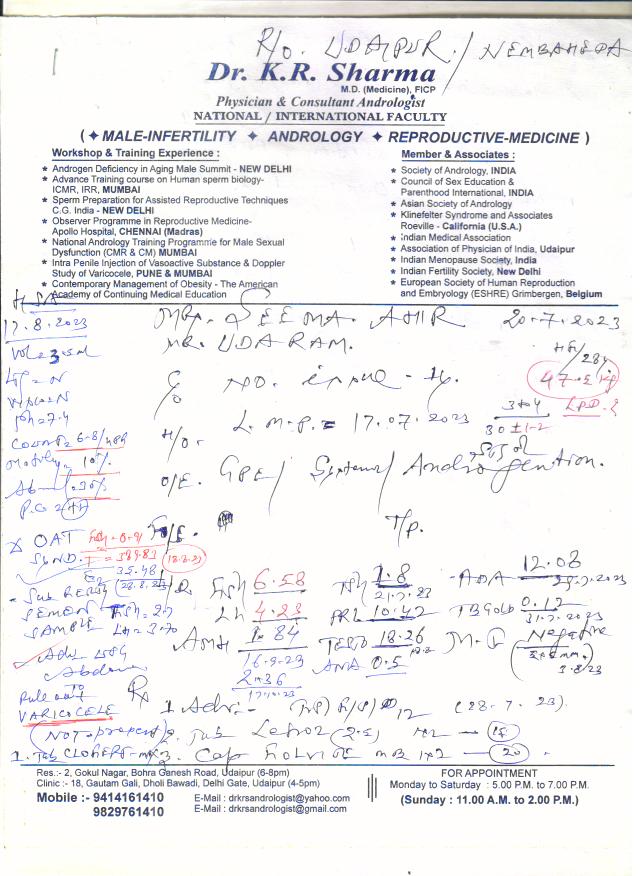 R/O. UDAIPUR. / NEMBAHEDA
Dr. K.R. Sharma
M.D. (Medicine), FICP
Physician & Consultant Andrologist
NATIONAL / INTERNATIONAL FACULTY
( ✦ MALE-INFERTILITY ✦ ANDROLOGY ✦ REPRODUCTIVE-MEDICINE )
Workshop & Training Experience :
★ Androgen Deficiency in Aging Male Summit - NEW DELHI
★ Advance Training course on Human sperm biology-
ICMR, IRR, MUMBAI
★ Sperm Preparation for Assisted Reproductive Techniques
C.G. India - NEW DELHI
★ Observer Programme in Reproductive Medicine-
Apollo Hospital, CHENNAI (Madras)
★ National Andrology Training Programme for Male Sexual
Dysfunction (CMR & CM) MUMBAI
★ Intra Penile Injection of Vasoactive Substance & Doppler
Study of Varicocele, PUNE & MUMBAI
★ Contemporary Management of Obesity - The American
Academy of Continuing Medical Education
Member & Associates :
★ Society of Andrology, INDIA
★ Council of Sex Education &
Parenthood International, INDIA
★ Asian Society of Andrology
★ Klinefelter Syndrome and Associates
Roeville - California (U.S.A.)
★ Indian Medical Association
★ Association of Physician of India, Udaipur
★ Indian Menopause Society, India
★ Indian Fertility Society, New Delhi
★ European Society of Human Reproduction
and Embryology (ESHRE) Grimbergen, Belgium
HSA
17.8.2023
Vol = 3.5ml
PH = 7.4
Count = 6-8/
Motility = 10%
* OAT
FSH = 0.91
T = 389.83
18.8.23
35.48
E2
(28.8.23)
SEMEN
SAMPLE
FSH = 2.7
LH = 3.70
Adv USG
Abdomen
Rule out
VARICOCELE
(NOT-prepared)
MRS. SEEMA AHIR 20.7.2023
MR. UDARAM.
47.5 kg
C/o NO. issue -
L.M.P. = 17.07.2023
3 → 4
30 ± 1-2
LPD.?
H/o.
O/E. GPE/ Systemic/ Andro
F/E.
T/P.
FSH 6.58
LH 4.23
AMH 1.84
16.9.23
2.36
17.10.23
TSH 1.8
21.7.23
PRL 10.42
TESTO 18.26
ANA 0.5
ADA 12.08
TB Gold 0.12
31.7.2023
M.T Negative
3.8.23
Rx
1 Adv:- (28.7.23).
2. Tab Letroz (2.5)
3. Cap 1x2 — 20
1. Tab CLOFERT-MX
Res.:- 2, Gokul Nagar, Bohra Ganesh Road, Udaipur (6-8pm)
Clinic :- 18, Gautam Gali, Dholi Bawadi, Delhi Gate, Udaipur (4-5pm)
Mobile :- 9414161410
9829761410
E-Mail : drkrsandrologist@yahoo.com
E-Mail : drkrsandrologist@gmail.com
FOR APPOINTMENT
Monday to Saturday : 5.00 P.M. to 7.00 P.M.
(Sunday : 11.00 A.M. to 2.00 P.M.)